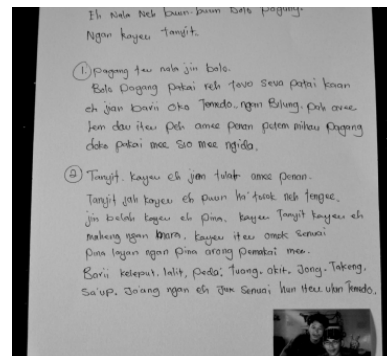 Eh Nala Neh buun-buun Bolo pagung.
Ngan kayeu Tanyit.
1. Pagang teu nala jin bolo.
Bolo Pagang pakai reh tovo seva patai kaan
eh jian barii oko Temedo, ngan Bilung. Poh avee
lem dau iteu Peh amee Penan potem mihau Pagang
doko pakai mee sio mee ngida.
2 Tanyit. kayeu eh jian tulat amee penan.
Tanyit jah kayeu eh puun ha' tusok neh tengee.
jin belah kayeu eh pina. kayeu Tanyit kayeu eh
maheng ngan mara. kayeu iteu omok senuai
pina loyan ngan pina arong pemakai mee.
Barii keleput. lalit, peda', tuang. akit. Jong. Takeng.
Sa'up. Jo'ang ngan eh senuai hun iteu ulan Temedo.